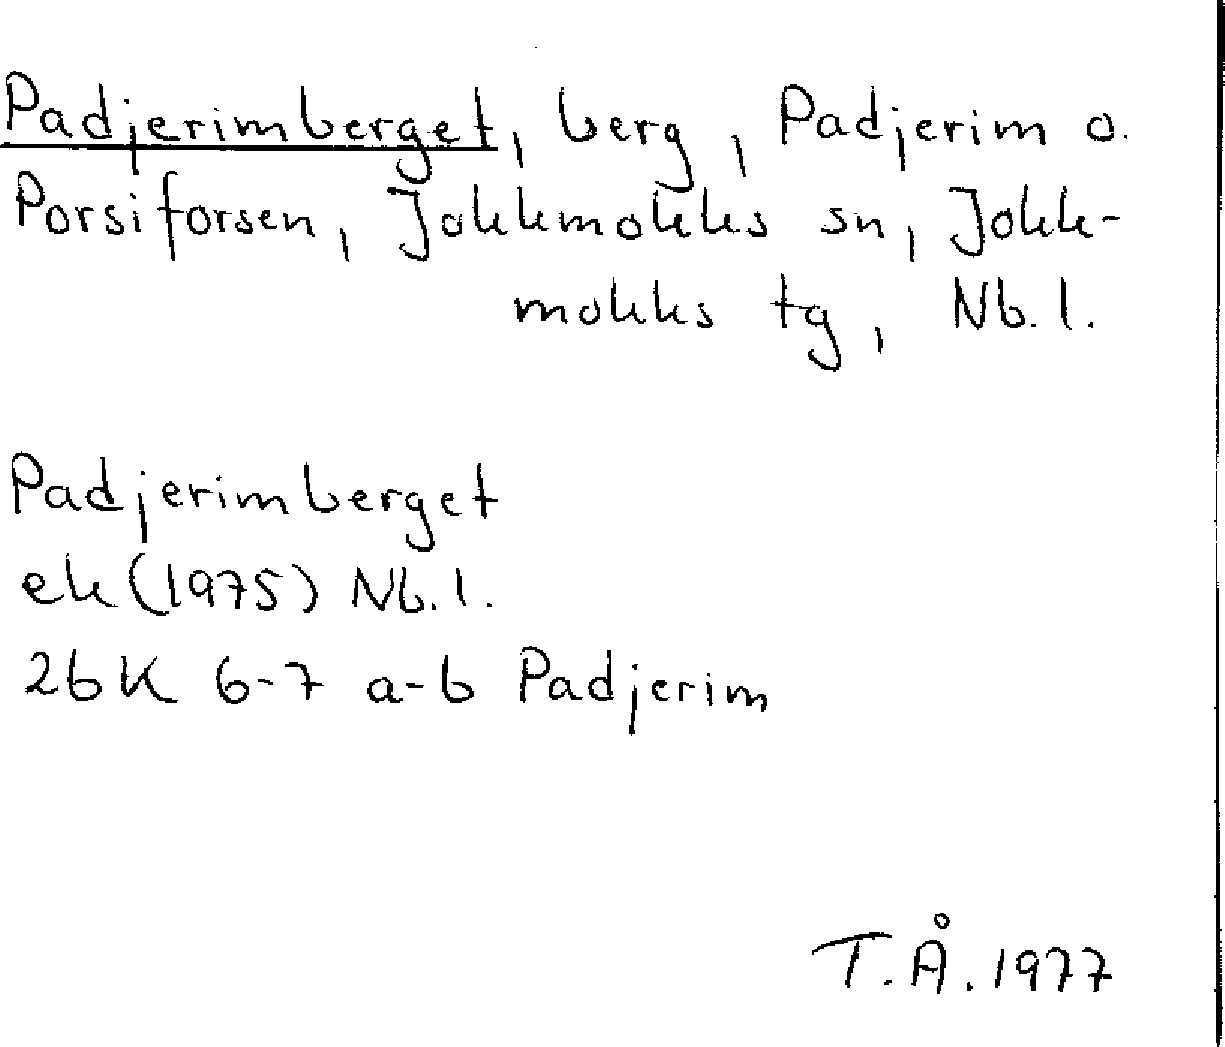 Padjerimberget, berg, Padjerim o.
Porsiforsen, Jokkmokks sn, Jokk-
mokks tg, Nb. l.
Padjerimberget
ek (1975) Nb. l.
26K 6-7 a-b Padjerim
T.Å. 1977